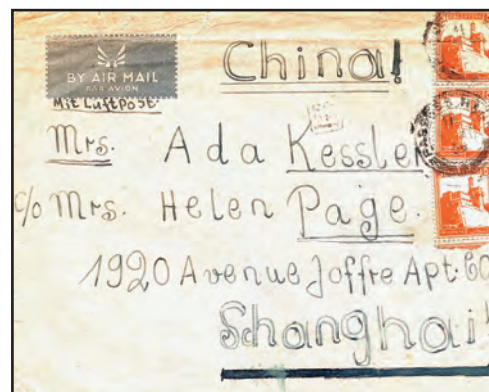 China!
BY AIR MAIL
PAR AVION
Mit Luftpost.
Mrs. Ada Kessler
c/o Mrs. Helen Page.
1920 Avenue Joffre Apt.
Shanghai!